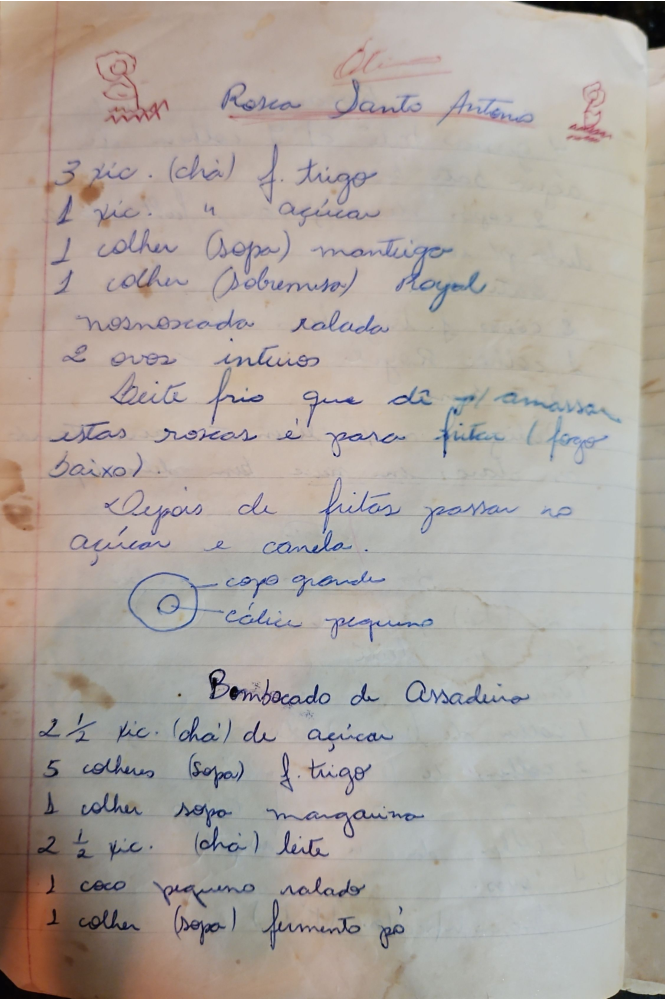 Ótimo
Rosca Santo Antonio
3 xic. (chá) f. trigo
1 xic. " açúcar
1 colher (sopa) manteiga
1 colher (sobremesa) Royal
nosnoscada ralada
2 ovos inteiros
Leite frio que dê p/ amassar
estas roscas é para fritar (fogo
baixo).
Depois de fritas passar no
açúcar e canela.
copo grande
cálice pequeno
Bombocado de Assadeira
2 1/2 xic. (chá) de açúcar
5 colheres (sopa) f. trigo
1 colher sopa margarina
2 1/2 xic. (chá) leite
1 coco pequeno ralado
1 colher (sopa) fermento pó